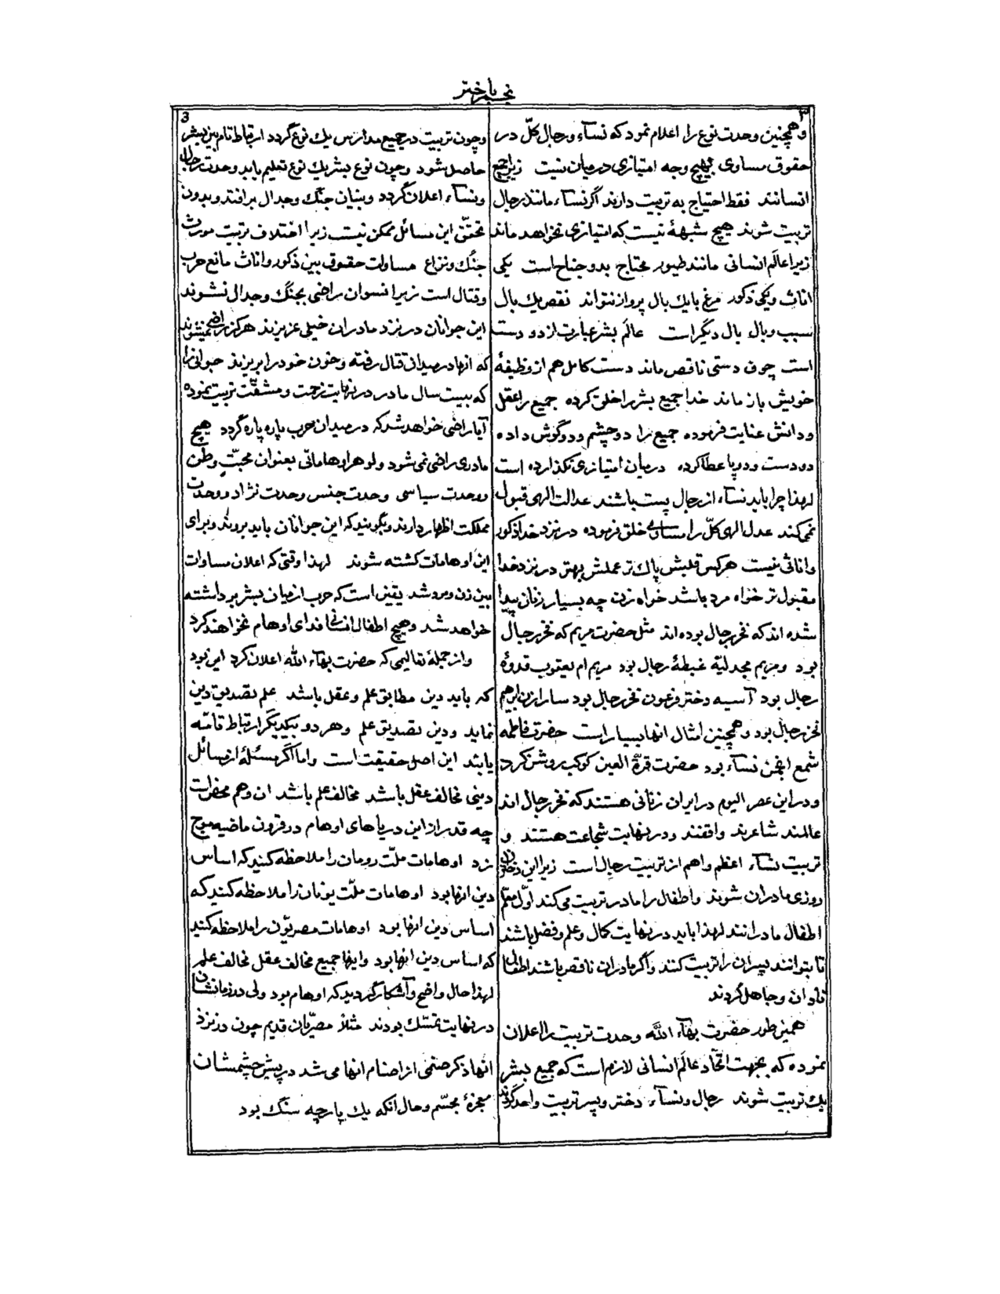 نجم باختر
۳
و همچنین وحدت نوع را اعلام نمود که نساء و رجال کلّ در
حقوق مساوی بهیچ وجه امتیازی در میان نیست زیرا جمیع
انسانند فقط احتیاج به تربیت دارند اگر نساء مانند رجال
تربیت شوند هیچ شبههٔ نیست که امتیازی نخواهد ماند
زیرا عالم انسانی مانند طیور محتاج بدو جناح است یکی
اناث و یکی ذکور مرغ با یک بال پرواز نتواند نقص یک بال
سبب وبال بال دیگر است عالم بشر عبارت از دو دست
است چون دستی ناقص ماند دست کامل هم از وظیفهٔ
خویش باز ماند خدا جمیع بشر را خلق کرده جمیع را عقل
و دانش عنایت فرموده جمیع را دو چشم و دو گوش داده
دو دست و دو پا عطا کرده در میان امتیازی نگذارده است
لهذا چرا باید نساء از رجال پست باشند عدالت الهی قبول
نمی کند عدل الهی کلّ را مساوی خلق فرموده در نزد خدا ذکور
و اناثی نیست هر کس قلبش پاک تر عملش بهتر در نزد خدا
مقبول تر خواه مرد باشد خواه زن چه بسیار زنان پیدا
شده اند که فخر رجال بوده اند مثل حضرت مریم که فخر رجال
بود و مریم مجدلیه غبطهٔ رجال بود مریم ام یعقوب قدوهٔ
رجال بود آسیه دختر فرعون فخر رجال بود سارا زن ابراهیم
فخر رجال بود و همچنین امثال انها بسیار است حضرت فاطمه
شمع انجمن نساء بود حضرت قرة العین کوکب روشن کرد
و در این عصر الیوم در ایران زنانی هستند که فخر رجال اند
عالمند شاعرند واقفند و در نهایت شجاعت هستند و
تربیت نساء اعظم و اهم از تربیت رجال است زیرا این دختران
روزی مادران شوند و اطفال را مادر تربیت می کند اوّل معلّم
اطفال مادرانند لهذا باید در نهایت کمال و علم و فضل باشند
تا بتوانند پسران را تربیت کنند و اگر مادران ناقص باشند اطفال
نادان و جاهل گردند
همین طور حضرت بهاء الله وحدت تربیت را اعلان
نموده که بجهت اتّحاد عالم انسانی لازم است که جمیع بشر
یک تربیت شوند رجال و نساء دختر و پسر تربیت واحد گردند
3
و چون تربیت در جمیع مدارس یک نوع گردد ارتباط تام بین بشر
حاصل شود و چون نوع بشر یک نوع تعلیم یابد وحدت رجال
و نساء اعلان گردد و بنیان جنگ و جدال برافتد و بدون
تحقّق این مسائل ممکن نیست زیرا اختلاف تربیت مورث
جنگ و نزاع مساوات حقوق بین ذکور و اناث مانع حرب
و قتال است زیرا نسوان راضی بجنگ و جدال نشوند
این جوانان در نزد مادران خیلی عزیزند هرگز راضی نمیشوند
که انها در میدان قتال رفته و خون خود را بریزند جوانی را
که بیست سال مادر در نهایت زحمت و مشقّت تربیت نموده
آیا راضی خواهد شد که در میدان حرب پاره پاره گردد هیچ
مادری راضی نمی شود ولو هر اوهاماتی بعنوان محبّت وطن
و وحدت سیاسی وحدت جنس وحدت نژاد و وحدت
مملکت اظهار دارند و بگویند که این جوانان باید بروند و برای
این اوهامات کشته شوند لهذا وقتی که اعلان مساوات
بین زن و مرد شد یقین است که حرب از میان بشر برداشته
خواهد شد و هیچ اطفال انسانی فدای اوهام نخواهند کرد
و از جملهٔ تعالیمی که حضرت بهاء الله اعلان کرد این بود
که باید دین مطابق علم و عقل باشد علم تصدیق دین
نماید و دین تصدیق علم و هر دو بیکدیگر ارتباط تامّه
یابند این اصل حقیقت است و اما اگر مسئلهٔ از مسائل
دینی مخالف عقل باشد مخالف علم باشد ان وهم محض است
چه قدر از این دریاهای اوهام در قرون ماضیه موج
زد اوهامات ملّت رومان را ملاحظه کنید که اساس
دین انها بود اوهامات ملّت یونان را ملاحظه کنید که
اساس دین انها بود اوهامات مصریّون را ملاحظه کنید
که اساس دین انها بود و اینها جمیع مخالف عقل مخالف علم
لهذا حال واضح و آشکار گردید که اوهام بود ولی در زمانشان
در نهایت تمسّک بودند مثلا مصریّان قدیم چون در نزد
انها ذکر صنمی از اصنام انها می شد در پیش چشمشان
معجزهٔ مجسّم و حال انکه یک پارچه سنگ بود